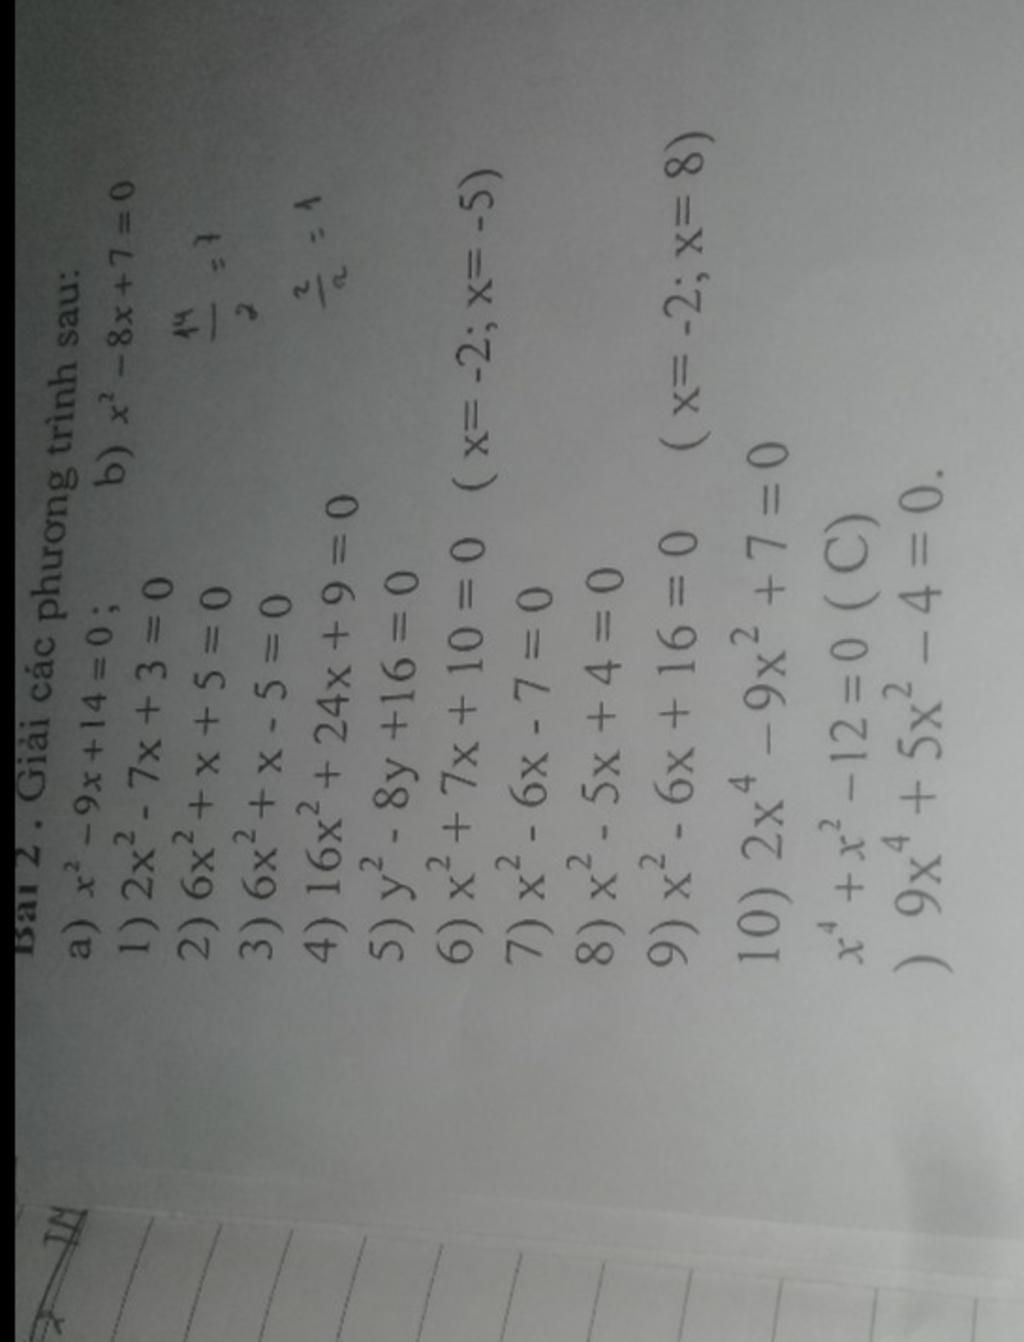 Bài 2 . Giải các phương trình sau:
a) x² – 9x + 14 = 0 ; b) x² – 8x + 7 = 0
1) 2x² - 7x + 3 = 0
14/2 = 7
2) 6x² + x + 5 = 0
3) 6x² + x - 5 = 0
2/2 = 1
4) 16x² + 24x + 9 = 0
5) y² - 8y +16 = 0
6) x² + 7x + 10 = 0 ( x= -2; x= -5)
7) x² - 6x - 7 = 0
8) x² - 5x + 4 = 0
9) x² - 6x + 16 = 0 ( x= -2; x= 8)
10) 2x⁴ – 9x² + 7 = 0
x⁴ + x² – 12 = 0 ( C)
) 9x⁴ + 5x² – 4 = 0.